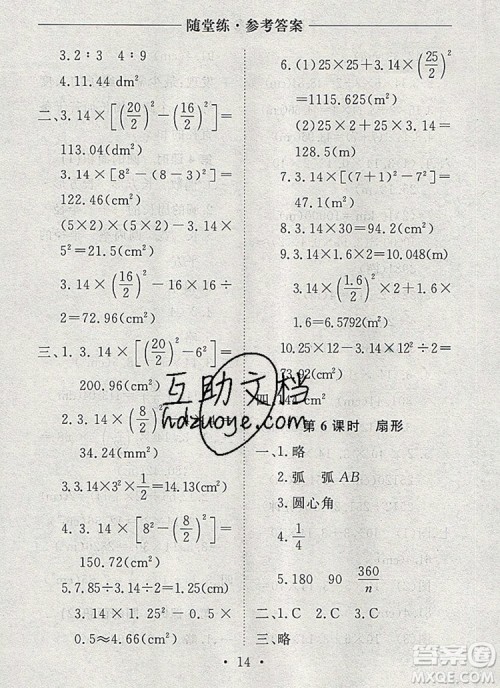 随堂练·参考答案
3. 2∶3 4∶9
4. 11.44 dm²
二、3.14×[(20/2)²-(16/2)²]=
113.04(dm²)
3.14×[8²-(8-3)²]=
122.46(cm²)
(5×2)×(5×2)-3.14×
5²=21.5(cm²)
3.14×(16/2)²-16×16÷
2=72.96(cm²)
三、1. 3.14×[(20/2)²-6²]=
200.96(cm²)
2. 3.14×(8/2)²-8×8÷2=
34.24(mm²)
3. 3.14×3²×1/2=14.13(cm²)
4. 3.14×[8²-(8/2)²]=
150.72(cm²)
5. 7.85÷3.14÷2=
3.14×1.25²-0.5×
0.5≈4.66(m²)
6. (1)25×25+3.14×(25/2)²
=1115.625(m²)
(2)25×2+3.14×25=
128.5(m)
7. 3.14×[(7+1)²-7²]=
47.1(m²)
9. 3.14×3.2=10.048(m)
3.14×(1.6/2)²+1.6×2×
1.6=6.5792(m²)
10. 25×12-3.14×12²÷2=
73.92(cm²)
四、144 cm²
第6课时 扇形
一、1. 略
2. 弧 弧AB
3. 圆心角
4. 1/4
5. 180 90 360/n
二、1. C 2. C 3. C 4. C
三、略
互助文档
hdzuoye.com
14
作业帮
MXQE.COM